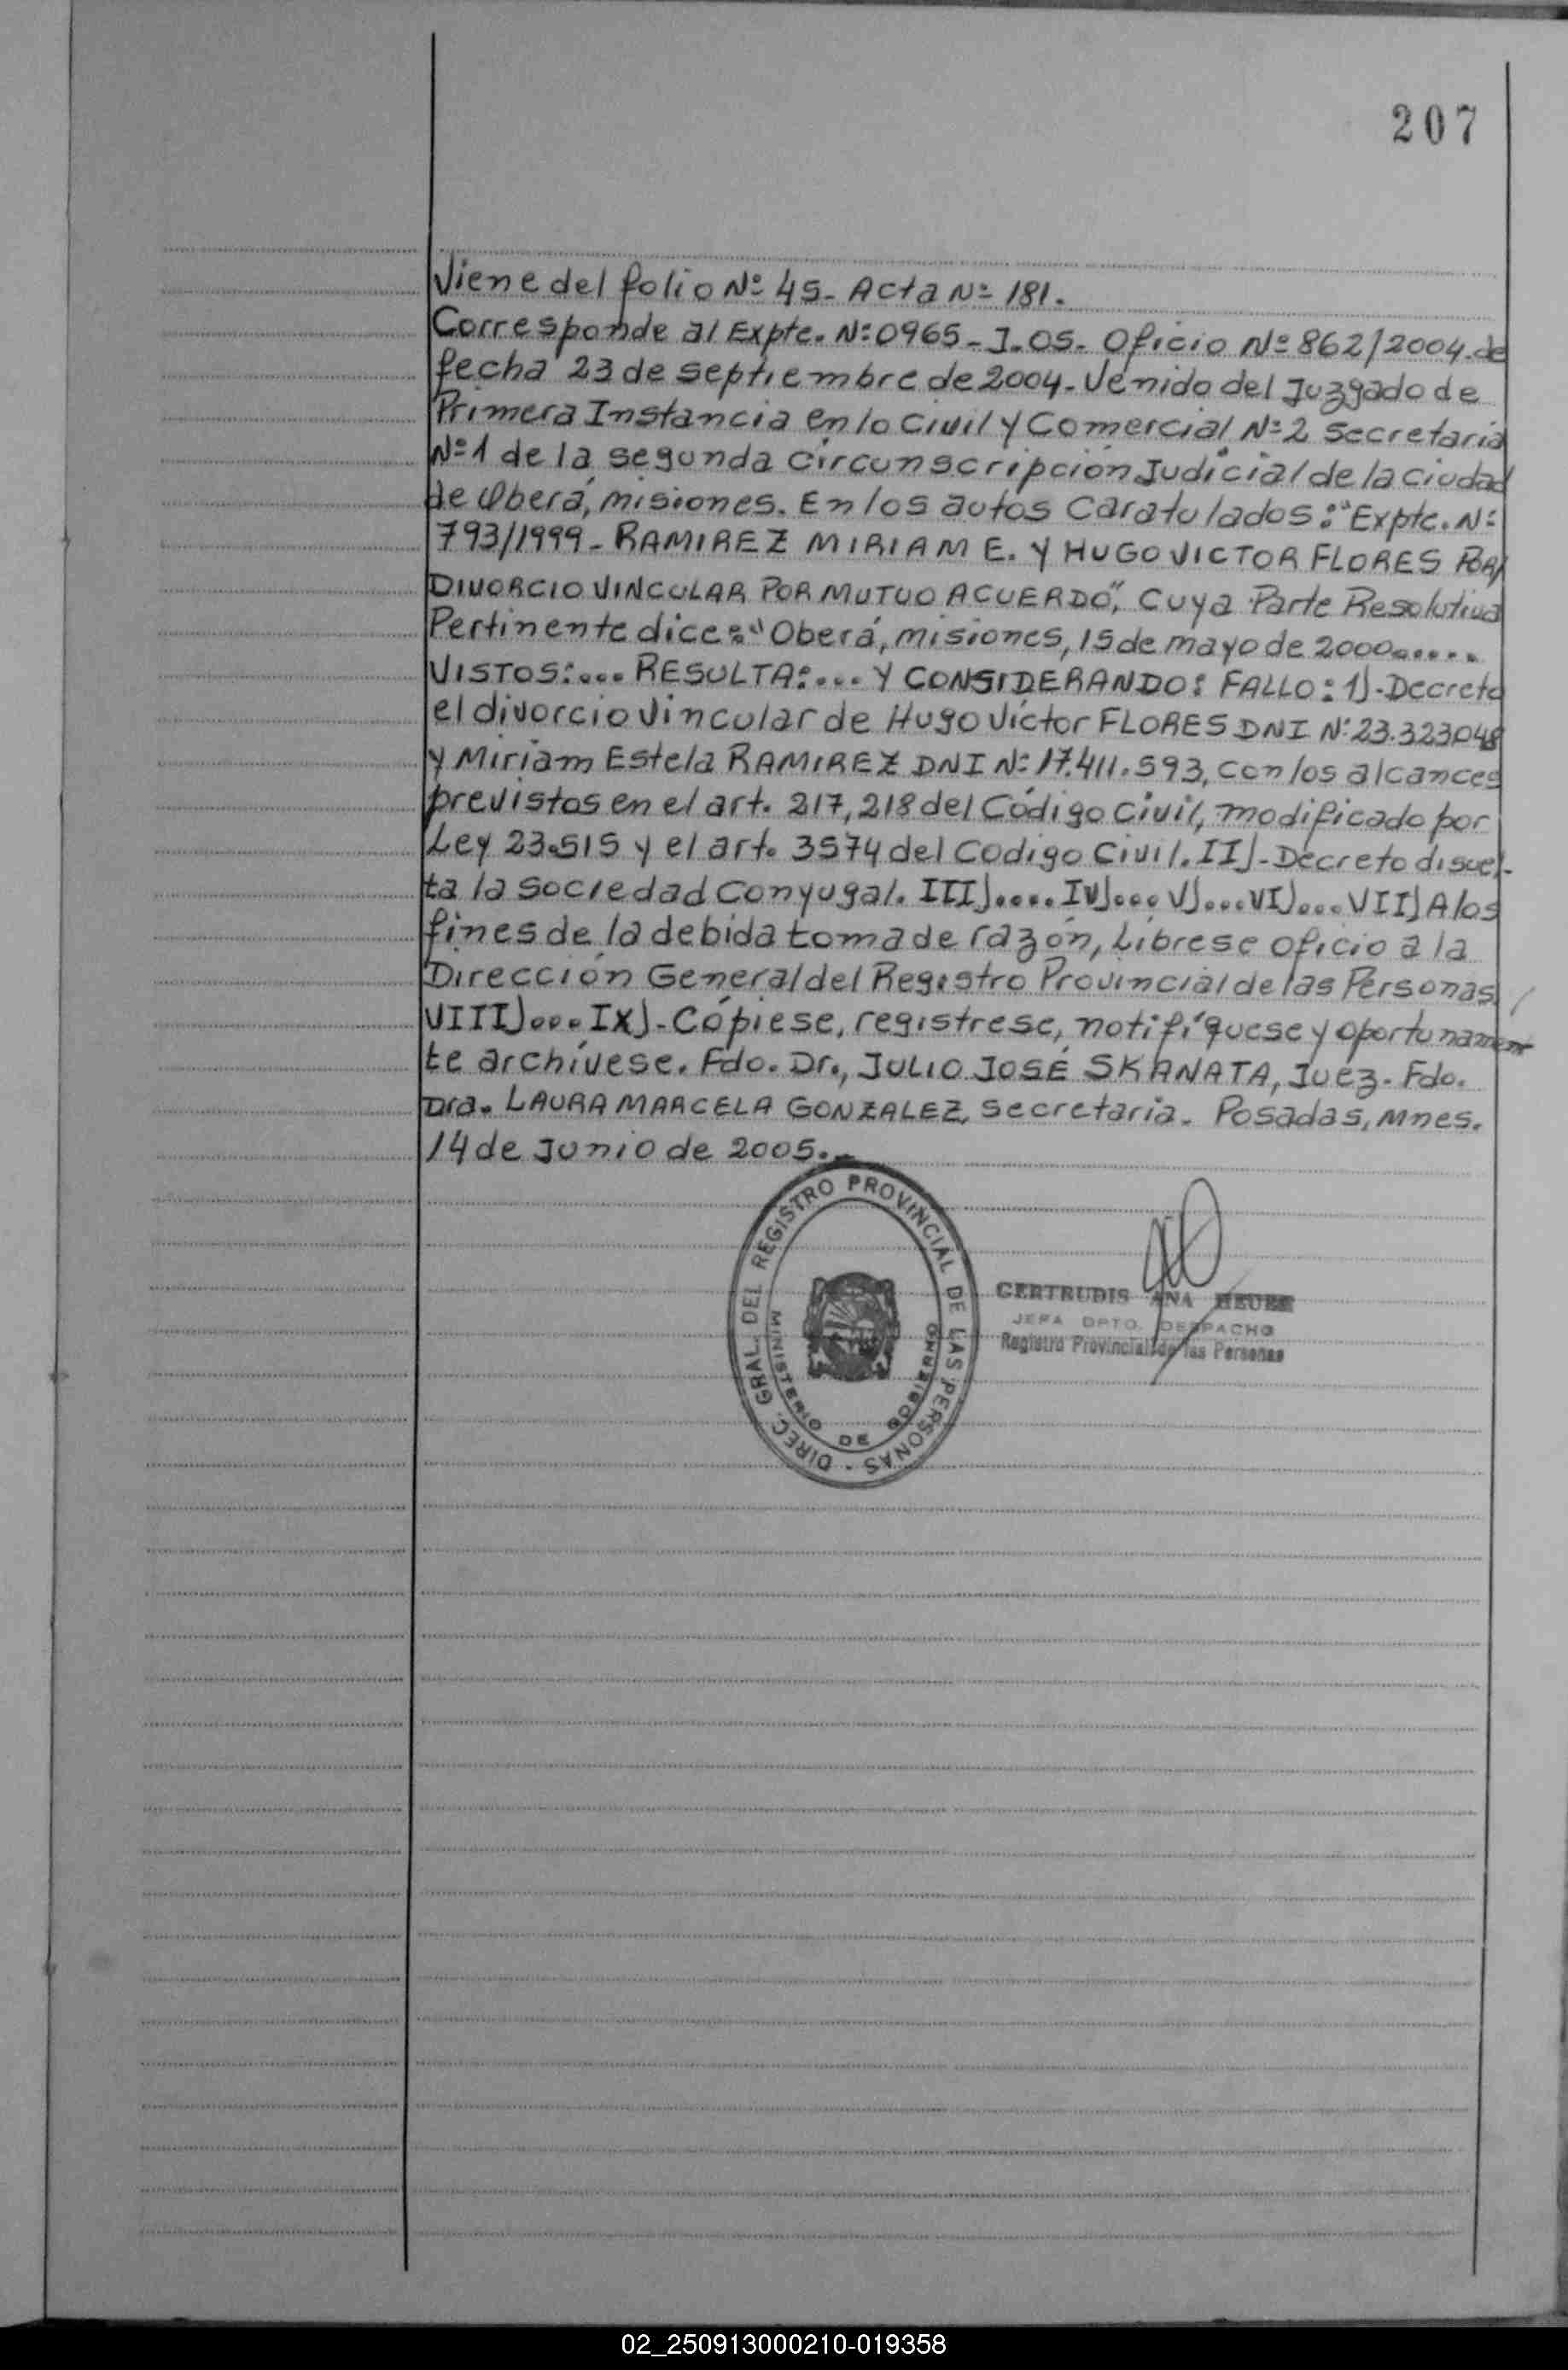 207
Viene del folio Nº 45- Acta Nº 181.
Corresponde al Expte. Nº 0965-J-05- Oficio Nº 862/2004. de
fecha 23 de septiembre de 2004- Venido del Juzgado de
Primera Instancia en lo Civil y Comercial Nº 2 Secretaria
Nº 1 de la segunda Circunscripción Judicial de la Ciudad
de Oberá, misiones. En los autos Caratulados: "Expte. Nº
793/1999- RAMIREZ MIRIAM E. Y HUGO VICTOR FLORES POR/
DIVORCIO VINCULAR POR MUTUO ACUERDO", Cuya Parte Resolutiva
Pertinente dice: "Oberá, misiones, 15 de mayo de 2000.....
VISTOS:... RESULTA:... Y CONSIDERANDO: FALLO: 1)- Decreto
el divorcio Vincular de Hugo Víctor FLORES DNI Nº 23.323.048
y Miriam Estela RAMIREZ DNI Nº 17.411.593, con los alcances
previstos en el art. 217, 218 del Código Civil, modificado por
Ley 23.515 y el art. 3574 del Codigo Civil. II)- Decreto disuel-
ta la sociedad Conyugal. III).... IV)... V)... VI)... VII) A los
fines de la debida toma de razón, Líbrese oficio a la
Dirección General del Registro Provincial de las Personas
VIII)... IX)- Cópiese, registrese, notifíquese y oportunamen
te archívese. Fdo. Dr., JULIO JOSÉ SKANATA, Juez- Fdo.
Dra. LAURA MARCELA GONZALEZ, secretaria- Posadas, Mnes.
14 de Junio de 2005.-
DIREC. GRAL. DEL REGISTRO PROVINCIAL DE LAS PERSONAS -
MINISTERIO DE GOBIERNO
GERTRUDIS ANA
JEFA DPTO. DESPACHO
Registro Provincial de las Personas
02_250913000210-019358